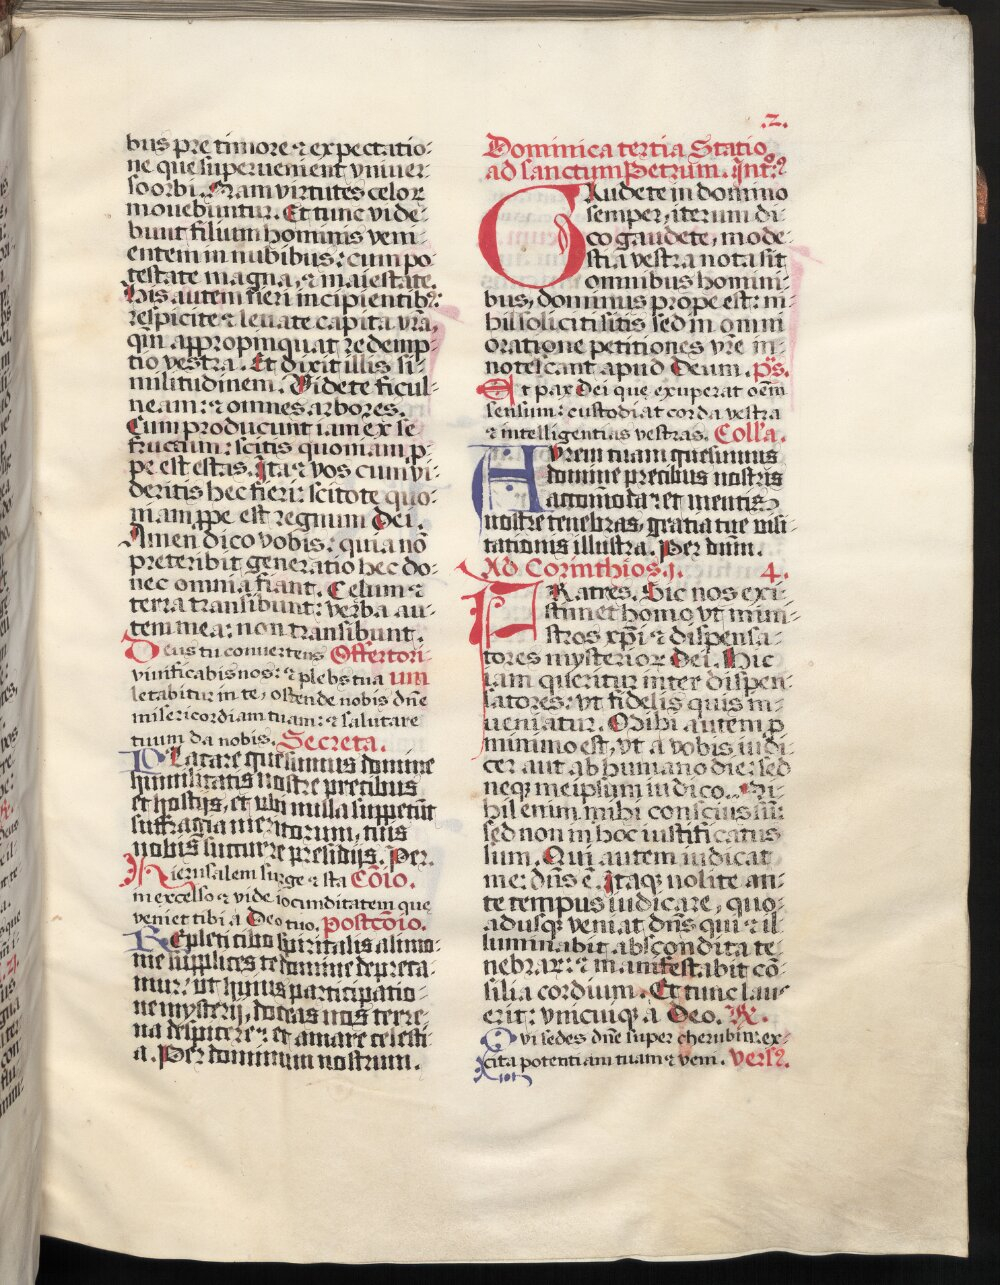 bus pre timore ⁊ expectatio-
ne que supervenient univer-
so orbi. Nam virtutes celoꝝ
movebuntur. Et tunc vide-
bunt filium hominis veni-
entem in nubibus: cum po-
testate magna, ⁊ maiestate.
His autem fieri incipientibꝰ:
respicite ⁊ levate capita vr̄a,
qm̄ appropinquat redemp-
tio vestra. Et dixit illis si-
militudinem. Videte ficul-
neam: ⁊ omnes arbores.
Cum producunt iam ex se
fructum: scitis quoniam p-
pe est estas. Ita ⁊ vos cum vi-
deritis hec fieri: scitote quo-
niam ꝓpe est regnum Dei.
Amen dico vobis: quia nō
preteribit generatio hec do-
nec omnia fiant. Celum ⁊
terra transibunt: verba au-
tem mea: non transibunt.
Deus tu convertens Offertori-
vivificabis nos: ⁊ plebs tua um
letabitur in te, ostende nobis dn̄e
misericordiam tuam: ⁊ salutare
tuum da nobis. Secreta.
Placare quesumus domine
humilitatis nostre precibus
et hostijs, et ubi nulla suppetūt
suffragia meritorum, tuis
nobis succurre presidijs. Per.
Hierusalem surge ⁊ sta Cōio.
in excelso ⁊ vide iocunditatem que
veniet tibi a Deo tuo. postcōio.
Repleti cibo spiritalis alimo-
nie supplices te domine depreca-
mur: ut huius participatio-
ne mysterij, doceas nos terre-
na despicere: et amare celesti-
a. Per dominum nostrum.
.2.
Dominica tertia Statio
ad sanctum Petrum. Intꝰ.
Gaudete in domino
semper, iterum di-
co gaudete, mode-
stia vestra nota sit
omnibus homini-
bus, dominus prope est: ni-
hil solliciti sitis sed in omni
oratione petitiones vr̄e in-
notescant apud Deum. p̄s.
Et pax Dei que exuperat oēm
sensum: custodiat corda vestra
⁊ intelligentias vestras. Coll'a.
Aurem tuam quesumus
domine precibus nostris
accomoda: et mentis
nostre tenebras, gratia tue visi-
tationis illustra. Per dnm̄.
Ad Corinthios .j. 4.
Fratres. Sic nos exi-
stimet homo vt mini-
stros xp̄i ⁊ dispensa-
tores mysterioꝝ Dei. Hic
iam queritur inter dispen-
satores: vt fidelis quis in-
veniatur. Mihi autem p
minimo est, vt a vobis iudi-
cer aut ab humano die: sed
neqꝫ meipsum iudico. Ni-
hil enim mihi conscius sū:
sed non in hoc iustificatus
sum. Qui autem iudicat
me: dn̄s ē. Itaqꝫ nolite an-
te tempus iudicare, quo-
adusqꝫ veniat dn̄s qui ⁊ il-
luminabit abscondita te-
nebraꝝ: ⁊ manifestabit cō-
silia cordium. Et tunc laus
erit: vnicuiqꝫ a Deo. ℟.
Qui sedes dn̄e super cherubin: ex-
cita potentiam tuam ⁊ veni. versꝰ.